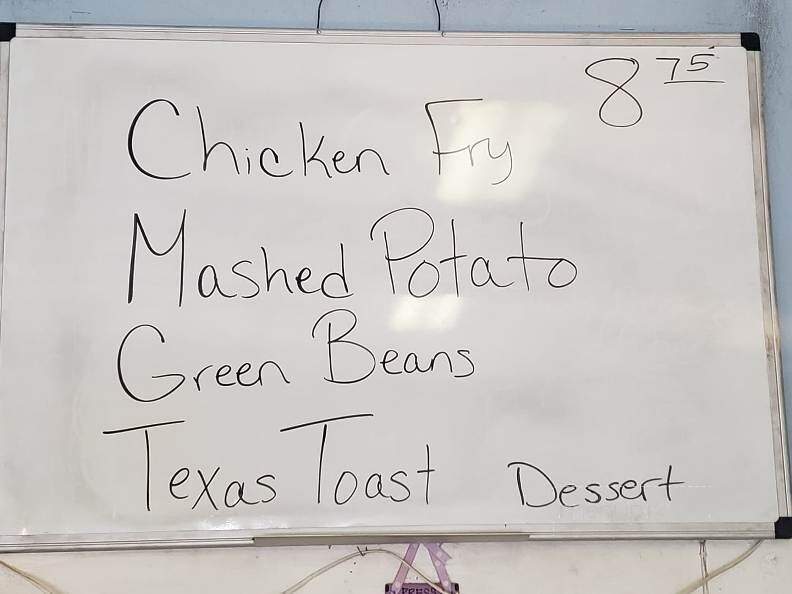 8 75
Chicken Fry
Mashed Potato
Green Beans
Texas Toast Dessert
PRESS